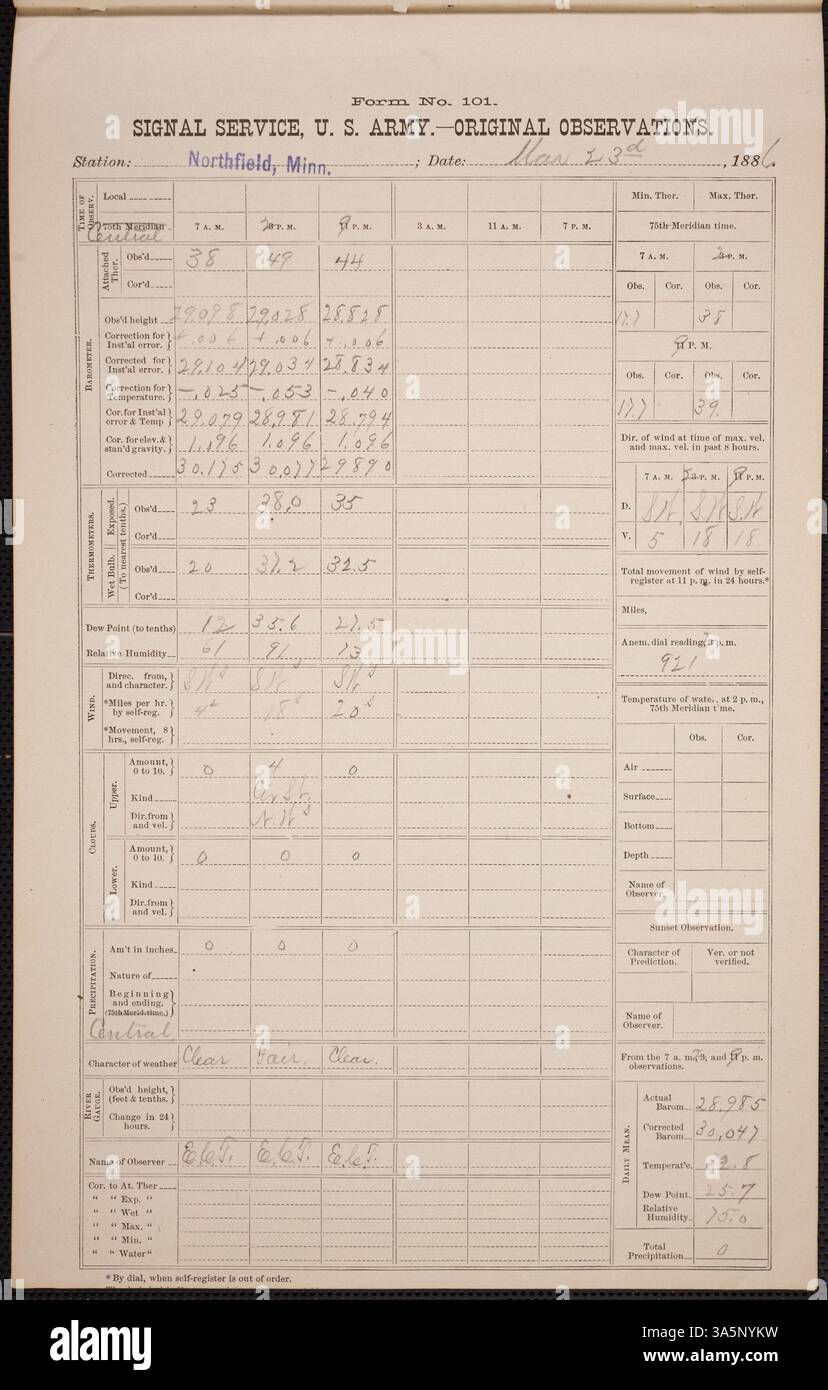 Form No. 101.
SIGNAL SERVICE, U. S. ARMY.—ORIGINAL OBSERVATIONS.
Station: Northfield, Minn. ; Date: Mar 23rd , 1886.
TIME OF OBSERV.
Local
75th Meridian 7 A. M. 3 P. M. 11 P. M. 3 A. M. 11 A. M. 7 P. M.
Central 2 9
BAROMETER.
Attached Ther.
Obs'd 38 49 44
Cor'd
Obs'd height 29.098 29.028 28.828
Correction for Inst'al error. +.006 +.006 +.006
Corrected for Inst'al error. 29.104 29.034 28.834
Correction for Temperature. -.025 -.053 -.040
Cor. for Inst'al error & Temp 29.079 28.981 28.794
Cor. for elev. & stan'd gravity. 1.096 1.096 1.096
Corrected 30.175 30.077 29890
THERMOMETERS. (To nearest tenths.)
Exposed.
Obs'd 23 38.0 35
Cor'd
Wet Bulb.
Obs'd 20 37.2 32.5
Cor'd
Dew Point (to tenths) 12 35.6 27.5
Relative Humidity 61 91 73
WIND.
Direc. from, and character. SW SW s SW s
*Miles per hr. by self-reg. 4 18 s 20 s
*Movement, 8 hrs., self-reg.
CLOUDS.
Upper.
Amount, 0 to 10. 0 4 0
Kind Cir St.
Dir. from and vel. N.W s
Lower.
Amount, 0 to 10. 0 0 0
Kind
Dir. from and vel.
PRECIPITATION.
Am't in inches 0 0 0
Nature of
Beginning and ending. (75th Merid. time.)
Central
Character of weather Clear Fair. Clear.
RIVER GAUGE.
Obs'd height, (feet & tenths.)
Change in 24 hours.
Name of Observer E.C.T. E.C.T. E.C.T.
Cor. to At. Ther
“ “ Exp. “
“ “ Wet “
“ “ Max. “
“ “ Min. “
“ “ Water “
* By dial, when self-register is out of order.
Min. Ther. Max. Ther.
75th-Meridian time.
7 A. M. 3 P. M.
2
Obs. Cor. Obs. Cor.
17.7 38
11 P. M.
9
Obs. Cor. Obs. Cor.
17.7 39.
Dir. of wind at time of max. vel. and max. vel. in past 8 hours.
7 A. M. 3 P. M. 11 P. M.
D. SW SW S.W
V. 5 18 18
Total movement of wind by self-register at 11 p. m. in 24 hours.*
Miles,
Anem. dial reading, 3 p. m.
921
Temperature of water at 2 p. m., 75th Meridian time.
Obs. Cor.
Air
Surface
Bottom
Depth
Name of Observer.
Sunset Observation.
Character of Prediction. Ver. or not verified.
Name of Observer.
From the 7 a. m., 3, and 11 p. m. observations.
DAILY MEAN.
Actual Barom. 28.985
Corrected Barom. 30.047
Temperat'e.
Dew Point 25.7
Relative Humidity 75.0
Total Precipitation 0
alamy
Image ID: 3A5NYKW
www.alamy.com